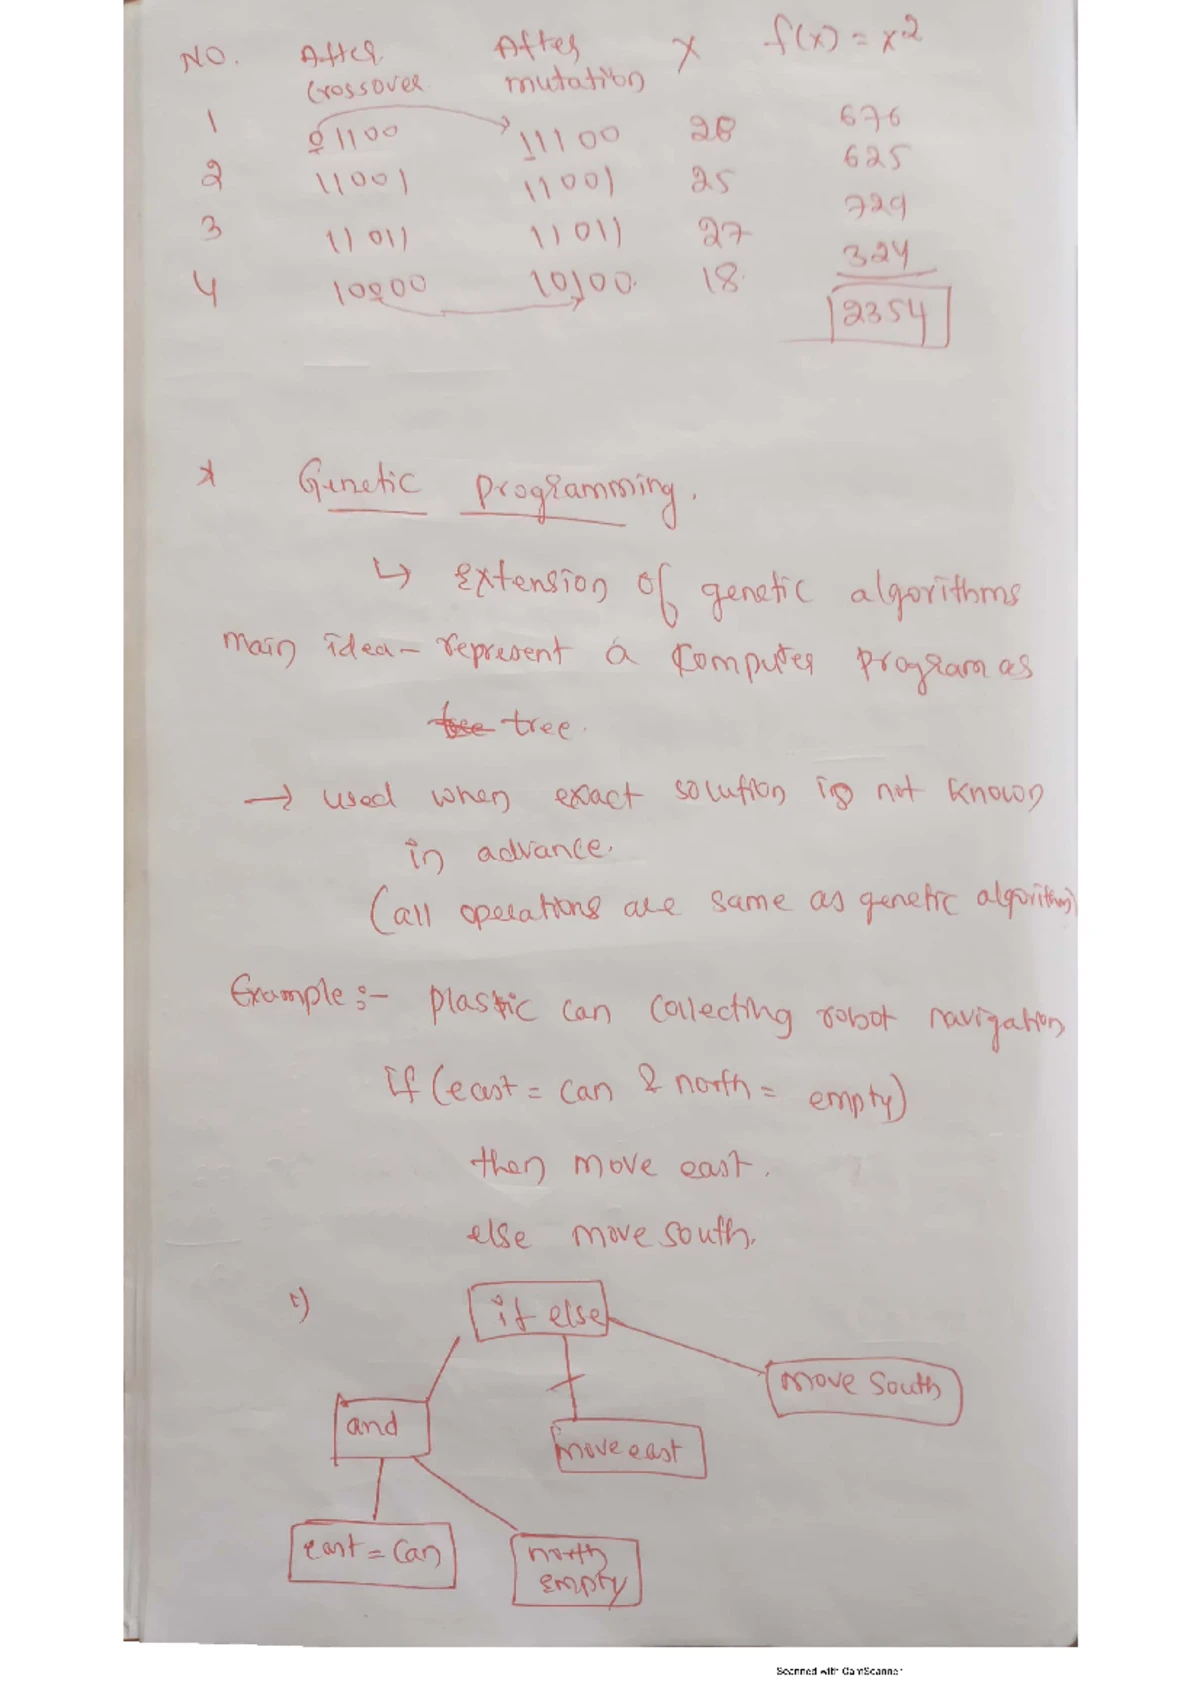 NO. After crossover After mutation X f(x) = x2
1 01100 11100 28 676
2 11001 11001 25 625
3 11011 11011 27 729
4 10000 10100. 18. 324
2354
* Genetic Programming.
↳ Extension of genetic algorithms
main idea - represent a computer program as
tree.
→ used when exact solution is not known
in advance.
(all operations are same as genetic algorithm)
Example :- Plastic can collecting robot navigation
if (east = can & north = empty)
then move east.
else move south.
if else
move south
and
move east
east = can
north
empty
Scanned with CamScanner